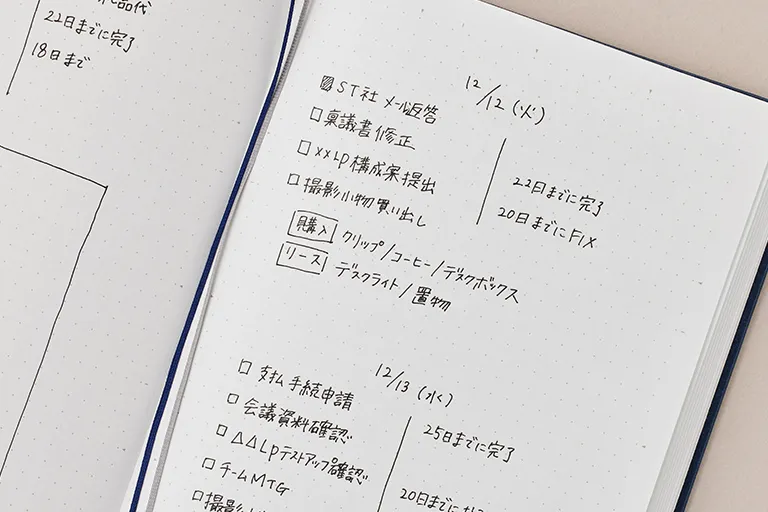 品代
22日までに完了
18日まで
12/12 (火)
ST社 メール返答
稟議書修正
××LP構成案提出
撮影小物買い出し
購入 クリップ/コーヒー/デスクボックス
リース デスクライト/置物
22日までに完了
20日までにFIX
12/13 (水)
支払手続申請
会議資料確認
△△LPテストアップ確認
チームMTG
撮影
25日までに完了
20日までに